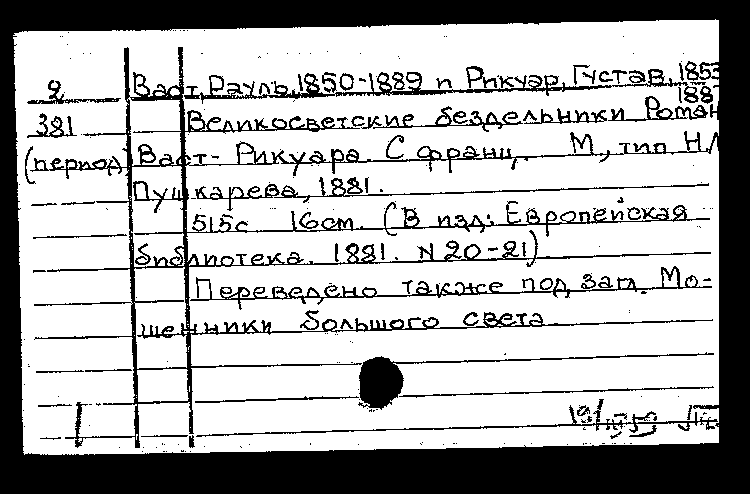 9 Васт, Рауль, 1850-1889 и Рикуар, Густав, 1853
1887
381 Великосветские бездельники Роман
(период) Васт-Рикуара. С франц. М., тип Н.Л
Пушкарева, 1881.
515с 16см. (В изд: Европейская
библиотека. 1881. N 20-21)
Переведено также под загл. Мо-
шенники большого света.